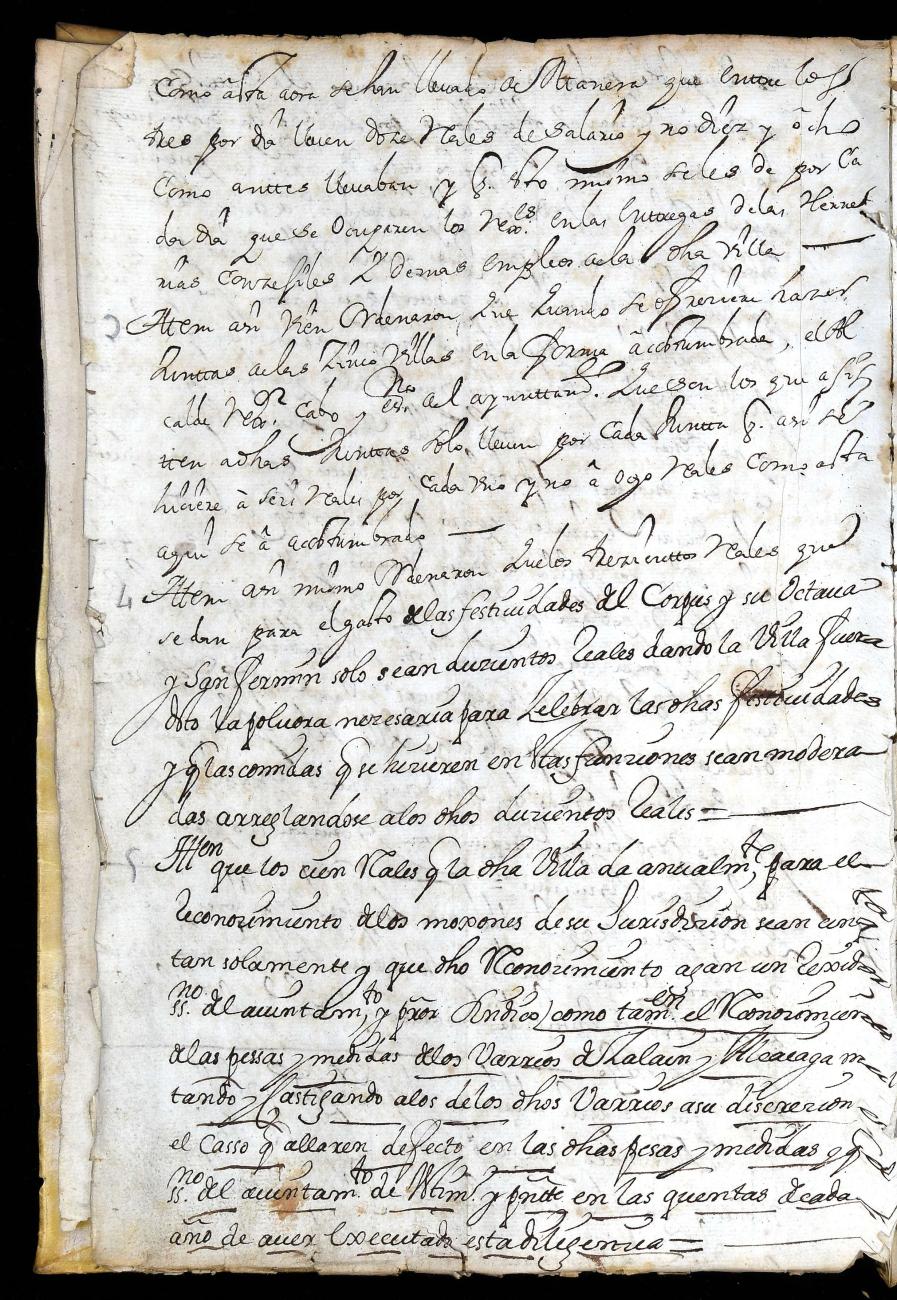 Como asta aora se han llevado de Manera que entre los
tres por dia lleven doze Reales de salario y no diez y ocho
Como anttes llevaban, y p.ª esto mismo se les de por Ca
da dia que se Ocuparen los Rex.es en las Enttregas de las Herret
rias Conzejiles y demas empleos de la dha Villa
3 Attem asi bien Ordenaron, Que Quando se ofreziere hazer
Junttas de las Zinco Villas en la forma acostumbrada, el Al
calde Rex.or Cabo y es.no del ayunttam.to Que son los que asis
tten a dhas Junttas solo lleven por Cada Juntta q. asi se
hiziere a seis Reales por Cada uno y no a ogo Reales Como asta
aqui se a acostumbrado
4 Attem asi mismo Ordenaron Que los trezienttos Reales que
se dan para el gasto de las festividades del Corpus y su Octava
y San Fermin solo sean duzientos Reales dando la Villa fuera
desto la polvora nezesaria para Zelebrar las dhas festividades
y q las comidas q se hizieren en estas funziones sean modera
das arreglandose a los dhos duzientos Reales =
5 Atten que los cien Reales q la dha Villa da anualm.te para el
Reconozimiento de los moxones de su Jurisdizion sean
tan solamente y que dho Reconozimiento agan un Rexid
ss.no del aiuntam.to y pror Sindico, como tam.en el Reconozimien
de las pessas y medidas de los Varrios de Zalain y Alcaiaga
tando y Castigando a los de los dhos Varrios a su discrezion
el Casso q allaren defecto en las dhas pesas y medidas y q
ss.no del aiuntam.to de testim.o y pntte en las quentas de cada
año de aver Executado esta diligencia =